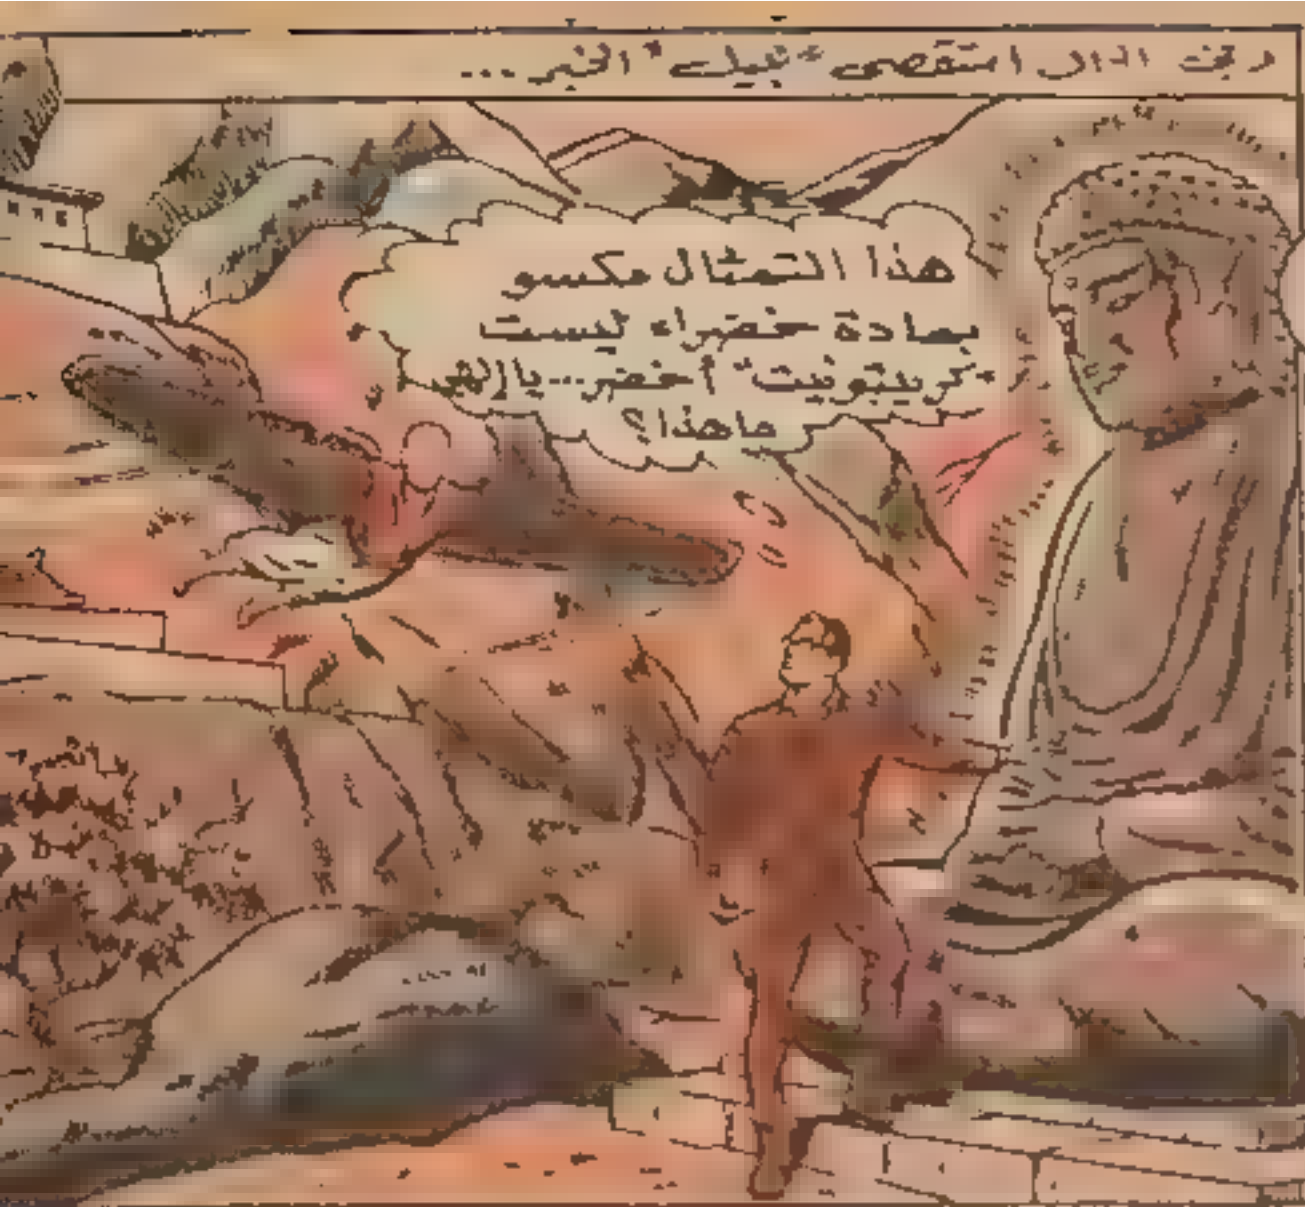 وفي الحال استقصى "نبيل" الخبر...
هذا التمثال مكسو
بمادة خضراء ليست
"كريبتونيت" أخضر... يا إلهي
ما هذا؟